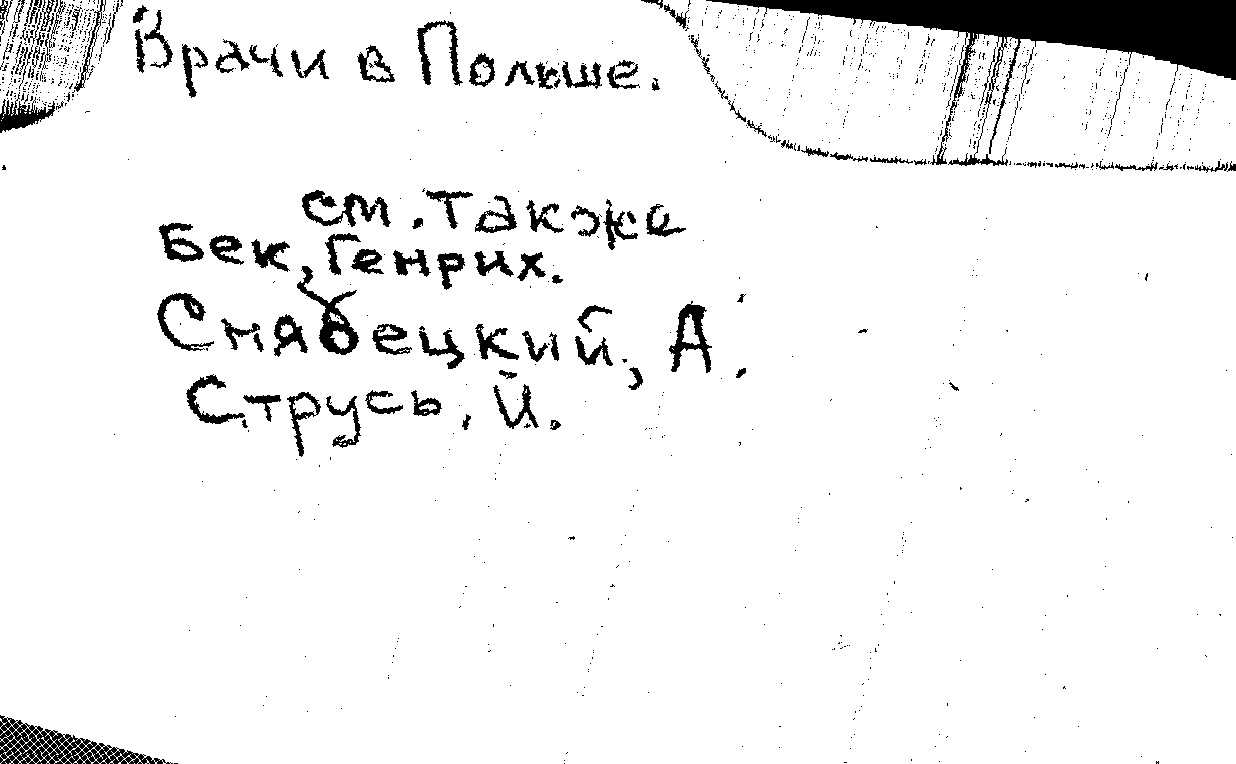 Врачи в Польше.
см. также
Бек, Генрих.
Снядецкий, А.
Струсь, Й.